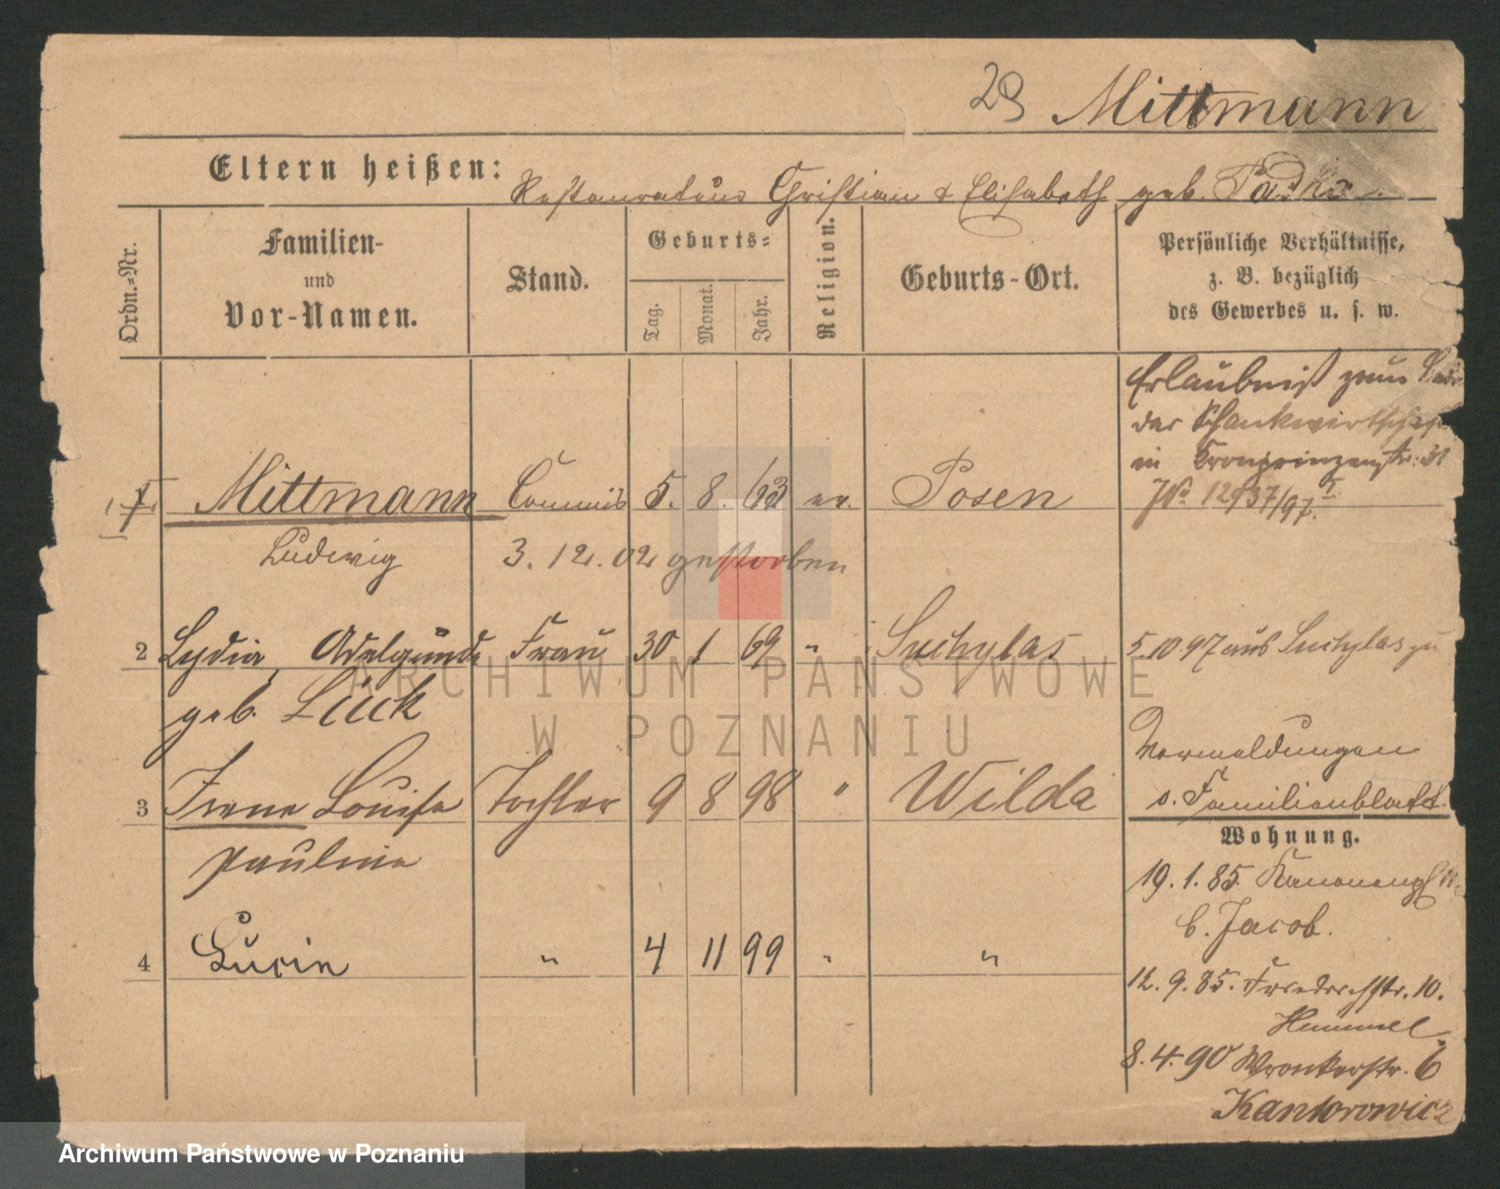 29 Mittmann
Eltern heißen: Restaurateur Christian & Elisabeth geb.
Ordn.-Nr.
Familien-
und
Vor-Namen.
Stand.
Geburts-
Tag.
Monat.
Jahr.
Religion.
Geburts-Ort.
Persönliche Verhältnisse,
z. B. bezüglich
des Gewerbes u. s. w.
Erlaubniß zum
der Schankwirthschaft
in Kronprinzenstr.
1 Mittmann Commis 5. 8. 63 ev. Posen
Ludwig 3. 12. 02 gestorben
2 Lydia, Adelgunde Frau 30 1 69 " Suchylas 5.10.97 aus Suchylas zu
geb. Lück
Vermeldungen
s. Familienblatt
3 Irene Louise Tochter 9 8 98 " Wilda
Pauline
Wohnung.
19. 1. 85. Kanonenpl
b. Jacob.
4 Lucie " 4 11 99 " "
12. 9. 85. Friedrichstr. 10.
Hummel
8. 4. 90 Wronkerstr. 6
Kantorowicz
ARCHIWUM PAŃSTWOWE
W POZNANIU
Archiwum Państwowe w Poznaniu